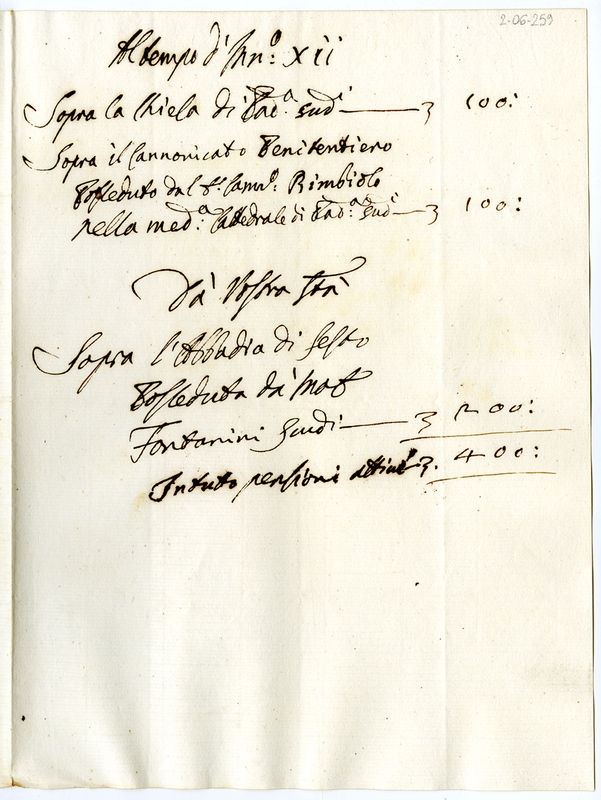 2-06-259
Al tempo d'Inn.º XII
Sopra la Chiesa di Pad.ª scudi 100:
Sopra il Cannonicato Penitentiero
Posseduto dal S.r Can.º Rimbiolo
nella med.ª Cattedrale di Pad.ª scudi 100:
Dà Vostra Stà
Sopra l'Abbadia di Sesto
Posseduta dà
Fontanini scudi 200:
In tutto pensioni attive 400: